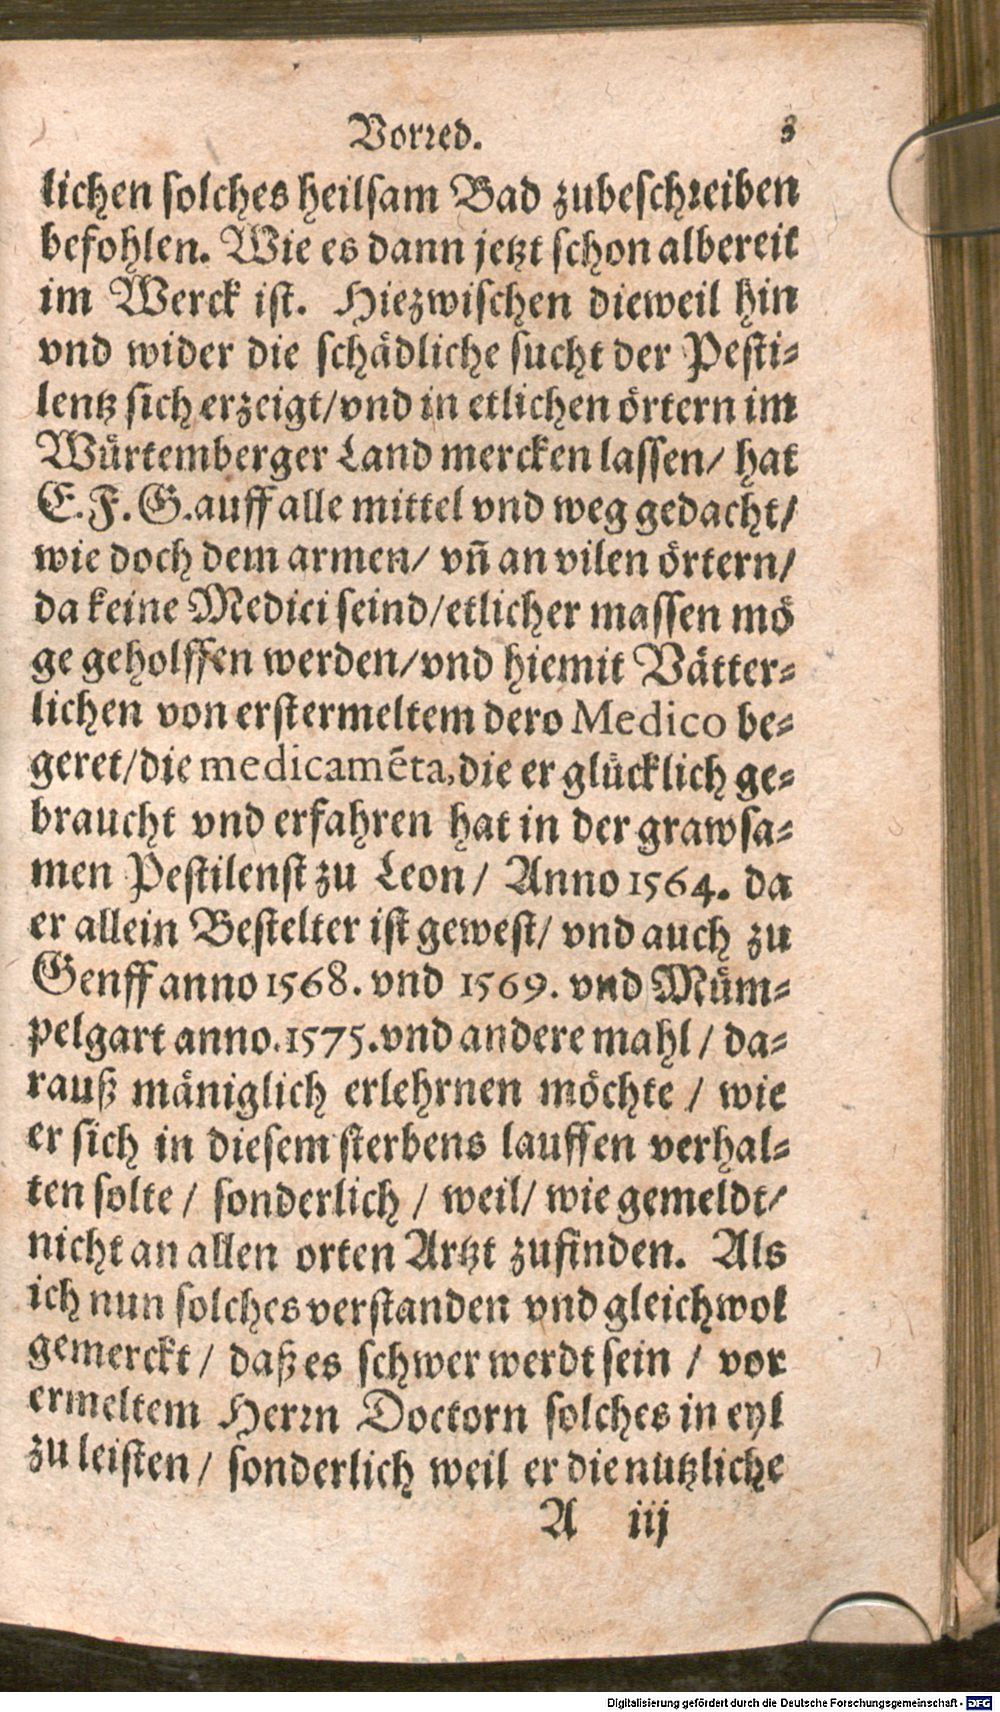 Vorred. 3
lichen solches heilsam Bad zubeschreiben
befohlen. Wie es dann jetzt schon albereit
im Werck ist. Hiezwischen dieweil hin
vnd wider die schädliche sucht der Pesti-
lentz sich erzeigt/vnd in etlichen örtern im
Würtemberger Land mercken lassen/ hat
E. F. G. auff alle mittel vnd weg gedacht/
wie doch dem armen/ vñ an vilen örtern/
da keine Medici seind/etlicher massen mö
ge geholffen werden/vnd hiemit Vätter-
lichen von erstermeltem dero Medico be-
geret/die medicamẽta, die er glücklich ge-
braucht vnd erfahren hat in der grawsa-
men Pestilenst zu Leon/ Anno 1564. da
er allein Bestelter ist gewest/ vnd auch zu
Genff anno 1568. vnd 1569. vnd Müm-
pelgart anno. 1575. vnd andere mahl/ da-
rauß mäniglich erlehrnen möchte/ wie
er sich in diesem sterbens lauffen verhal-
ten solte/ sonderlich/ weil/ wie gemeldt/
nicht an allen orten Artzt zufinden. Als
ich nun solches verstanden vnd gleichwol
gemerckt/ daß es schwer werdt sein/ vor
ermeltem Herrn Doctorn solches in eyl
zu leisten/ sonderlich weil er die nutzliche
A iij
Digitalisierung gefördert durch die Deutsche Forschungsgemeinschaft - DFG